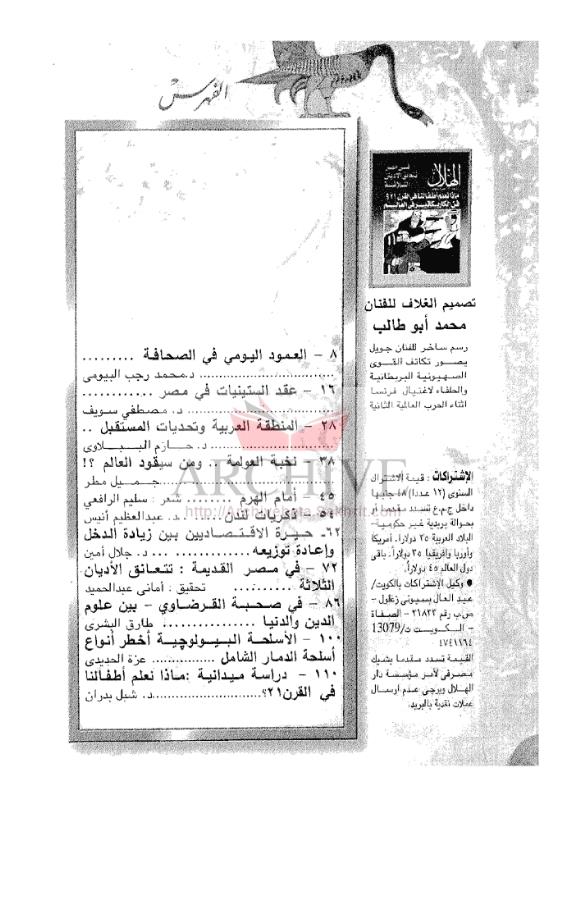 الفهرس
٨ - العمود اليومي في الصحافة .........
د.محمد رجب البيومي
١٦ - عقد الستينيات في مصر ............
د. مصطفي سويف
٢٨ - المنطقة العربية وتحديات المستقبل ..
د. حازم الببلاوي
٣٨ - نخبة العولمة .. ومن سيقود العالم ؟!
جميل مطر
٤٥ - أمام الهرم ........ شعر : سليم الرافعي
٥٤ - ذكريات لندن ....... د. عبدالعظيم أنيس
٦٢- حيرة الاقتصاديين بين زيادة الدخل
وإعادة توزيعه ............. د. جلال أمين
٧٢ - في مصر القديمة : تتعانق الأديان
الثلاثة .......... تحقيق : أماني عبدالحميد
٨٦ - في صحبة القرضاوي - بين علوم
الدين والدنيا ................ طارق البشرى
١٠٠ - الأسلحة البيولوچية أخطر أنواع
أسلحة الدمار الشامل .............. عزة الحديدى
١١٠ - دراسة ميدانية :ماذا نعلم أطفالنا
في القرن٢١؟..................د. شبل بدران
الهلال
فى مصر
تتعانق الأديان
الثلاثة
ماذا نعلم أطفالنا فى القرن ٢١؟
فن الكاريكاتير فى العالم
تصميم الغلاف للفنان
محمد أبو طالب
رسم ساخر للفنان جويل
يصور تكاتف القوى
الصهيونية البريطانية
والحلفاء لاغتيال فرنسا
اثناء الحرب العالمية الثانية
الإشتراكات : قيمة الاشتراك
السنوى (١٢ عددا) ٤٨ جنيها
داخل ج.م.ع تسدد مقدما أو
بحوالة بريدية غير حكومية-
البلاد العربية ٢٥ دولارا، أمريكا
وأوربا وافريقيا ٣٥ دولاراً، باقى
دول العالم ٤٥ دولاراً.
● وكيل الإشتراكات بالكويت/
عبد العال بسيونى زغلول -
ص.ب رقم ٢١٨٣٣ - الصفاة
- الكويت ت/13079
٤٧٤١١٦٤
القيمة تسدد مقدما بشيك
مصرفى لأمر مؤسسة دار
الهلال ويرجى عدم ارسال
عملات نقدية بالبريد.
ARCHIVE
http://Archivebeta.Sakhrit.com